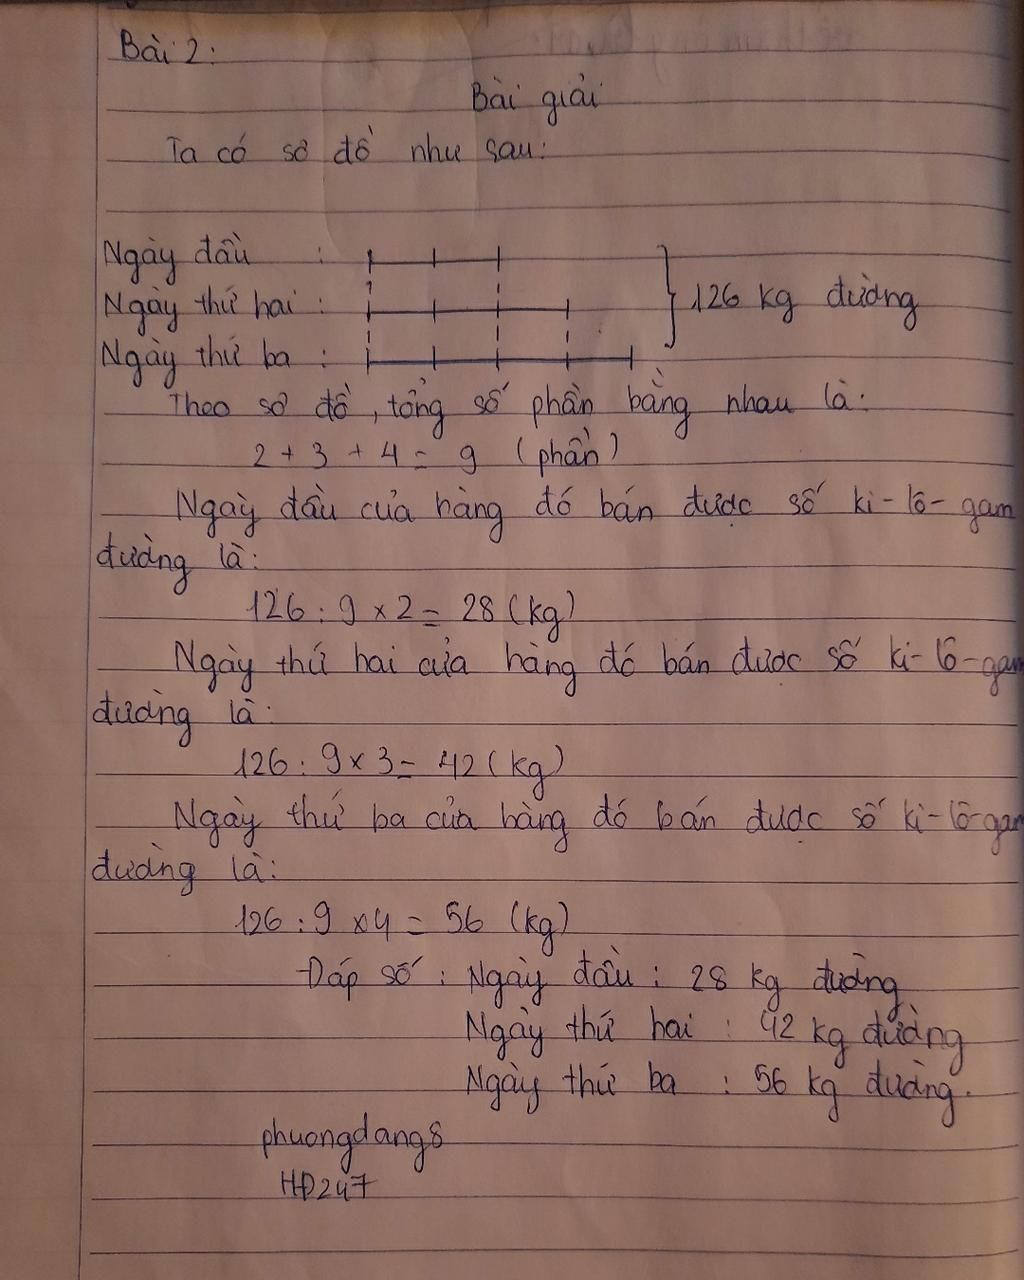 Bài 2:
Bài giải
Ta có sơ đồ như sau:
Ngày đầu :
Ngày thứ hai :
126 kg đường
Ngày thứ ba :
Theo sơ đồ, tổng số phần bằng nhau là:
2 + 3 + 4 = 9 (phần)
Ngày đầu cửa hàng đó bán được số ki-lô-gam
đường là:
126 : 9 x 2 = 28 (kg)
Ngày thứ hai cửa hàng đó bán được số ki-lô-gam
đường là:
126 : 9 x 3 = 42 (kg)
Ngày thứ ba cửa hàng đó bán được số ki-lô-gam
đường là:
126 : 9 x 4 = 56 (kg)
Đáp số : Ngày đầu : 28 kg đường
Ngày thứ hai : 42 kg đường
Ngày thứ ba : 56 kg đường.
phuongdang8
HĐ247